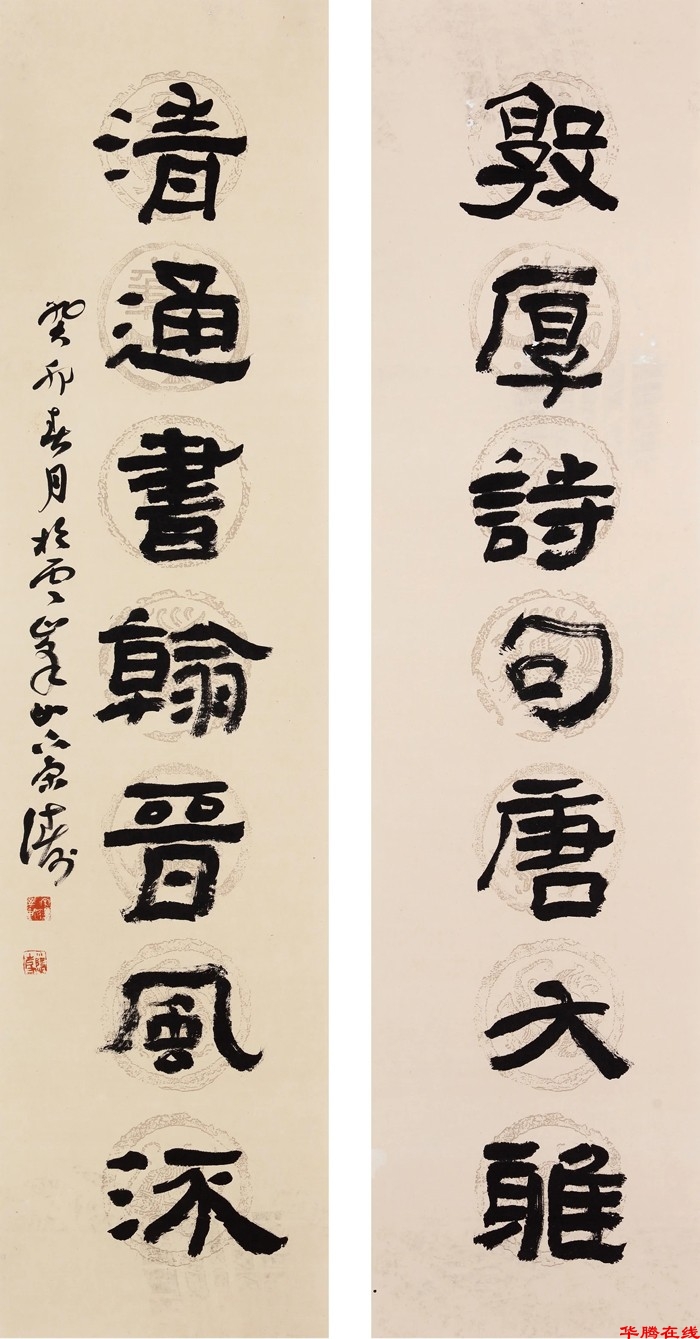 敦厚詩句唐大雅
清通書翰晉風流
癸卯春月於雲峯山下
华腾在线